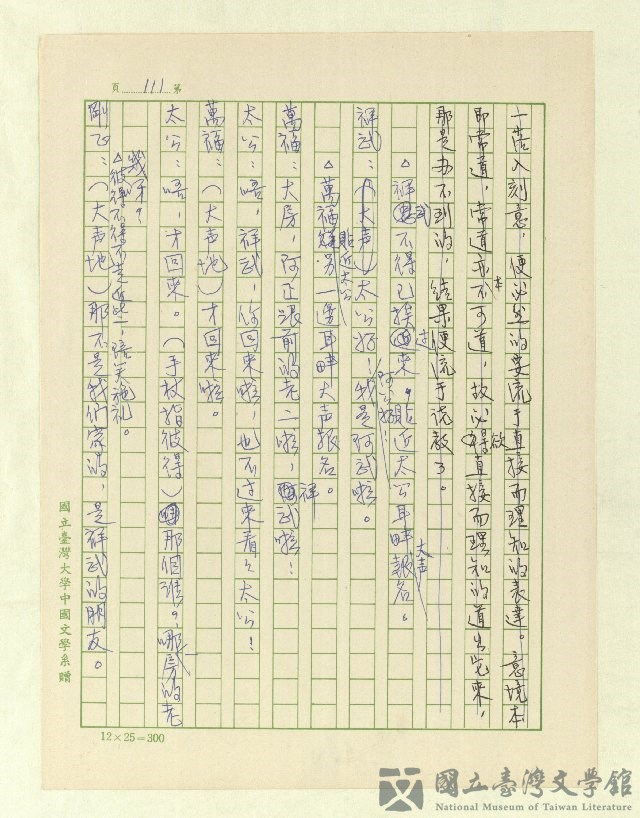 第 111 頁
一落入刻意，便必然的要流于直接而理知的表達。意境本
即常道，常道亦本不可道，故必欲得直接而理知的道出完來，
那是办不到的，結果便流于说教了。
△祥武不得已挨过來，貼近太公耳畔大声報名。
祥武：（大声）太公好！我是阿武啦。
阿公好！
△萬福貼近太公另一邊耳畔大声報名。
萬福：大房，阿正跟前的老二啦，祥武啦！
太公：唔，祥武，你回來啦，也不过來看看太公！
萬福：（大声地）才回來啦。
太公：唔，才回來。（手杖指彼得）那個誰，哪房的老
幾呀？
△彼得不得不走近些，陪笑施礼。
剛正：（大声地）那不是我们家的，是祥武的朋友。
國立臺灣大學中國文學系贈
12×25=300
國立臺灣文學館
National Museum of Taiwan Literature